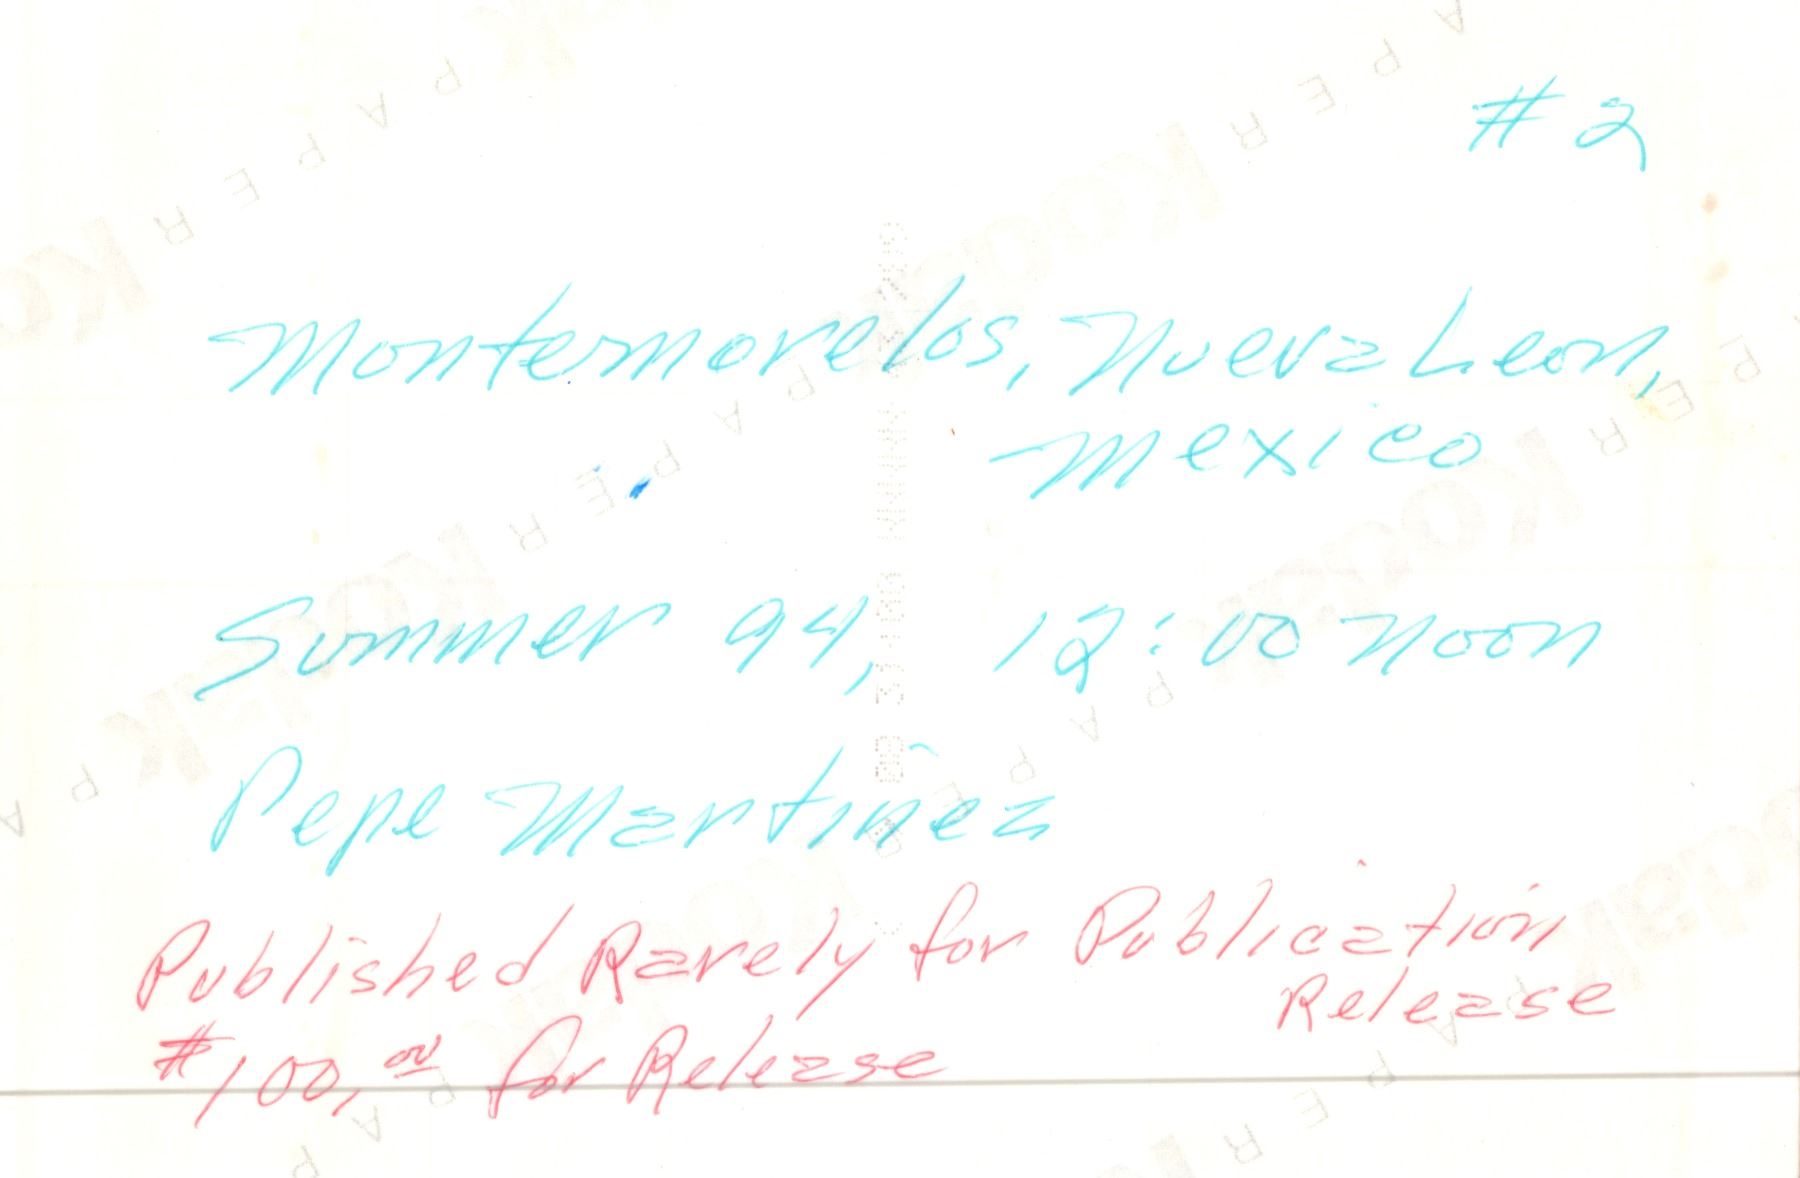 # 2
Montemorelos, Nueva Leon,
Mexico
Summer 94, 12:00 Noon
Pepe Martinez
Published Rarely for Publication
Release
$100,00 for Release
Kodak
PAPER